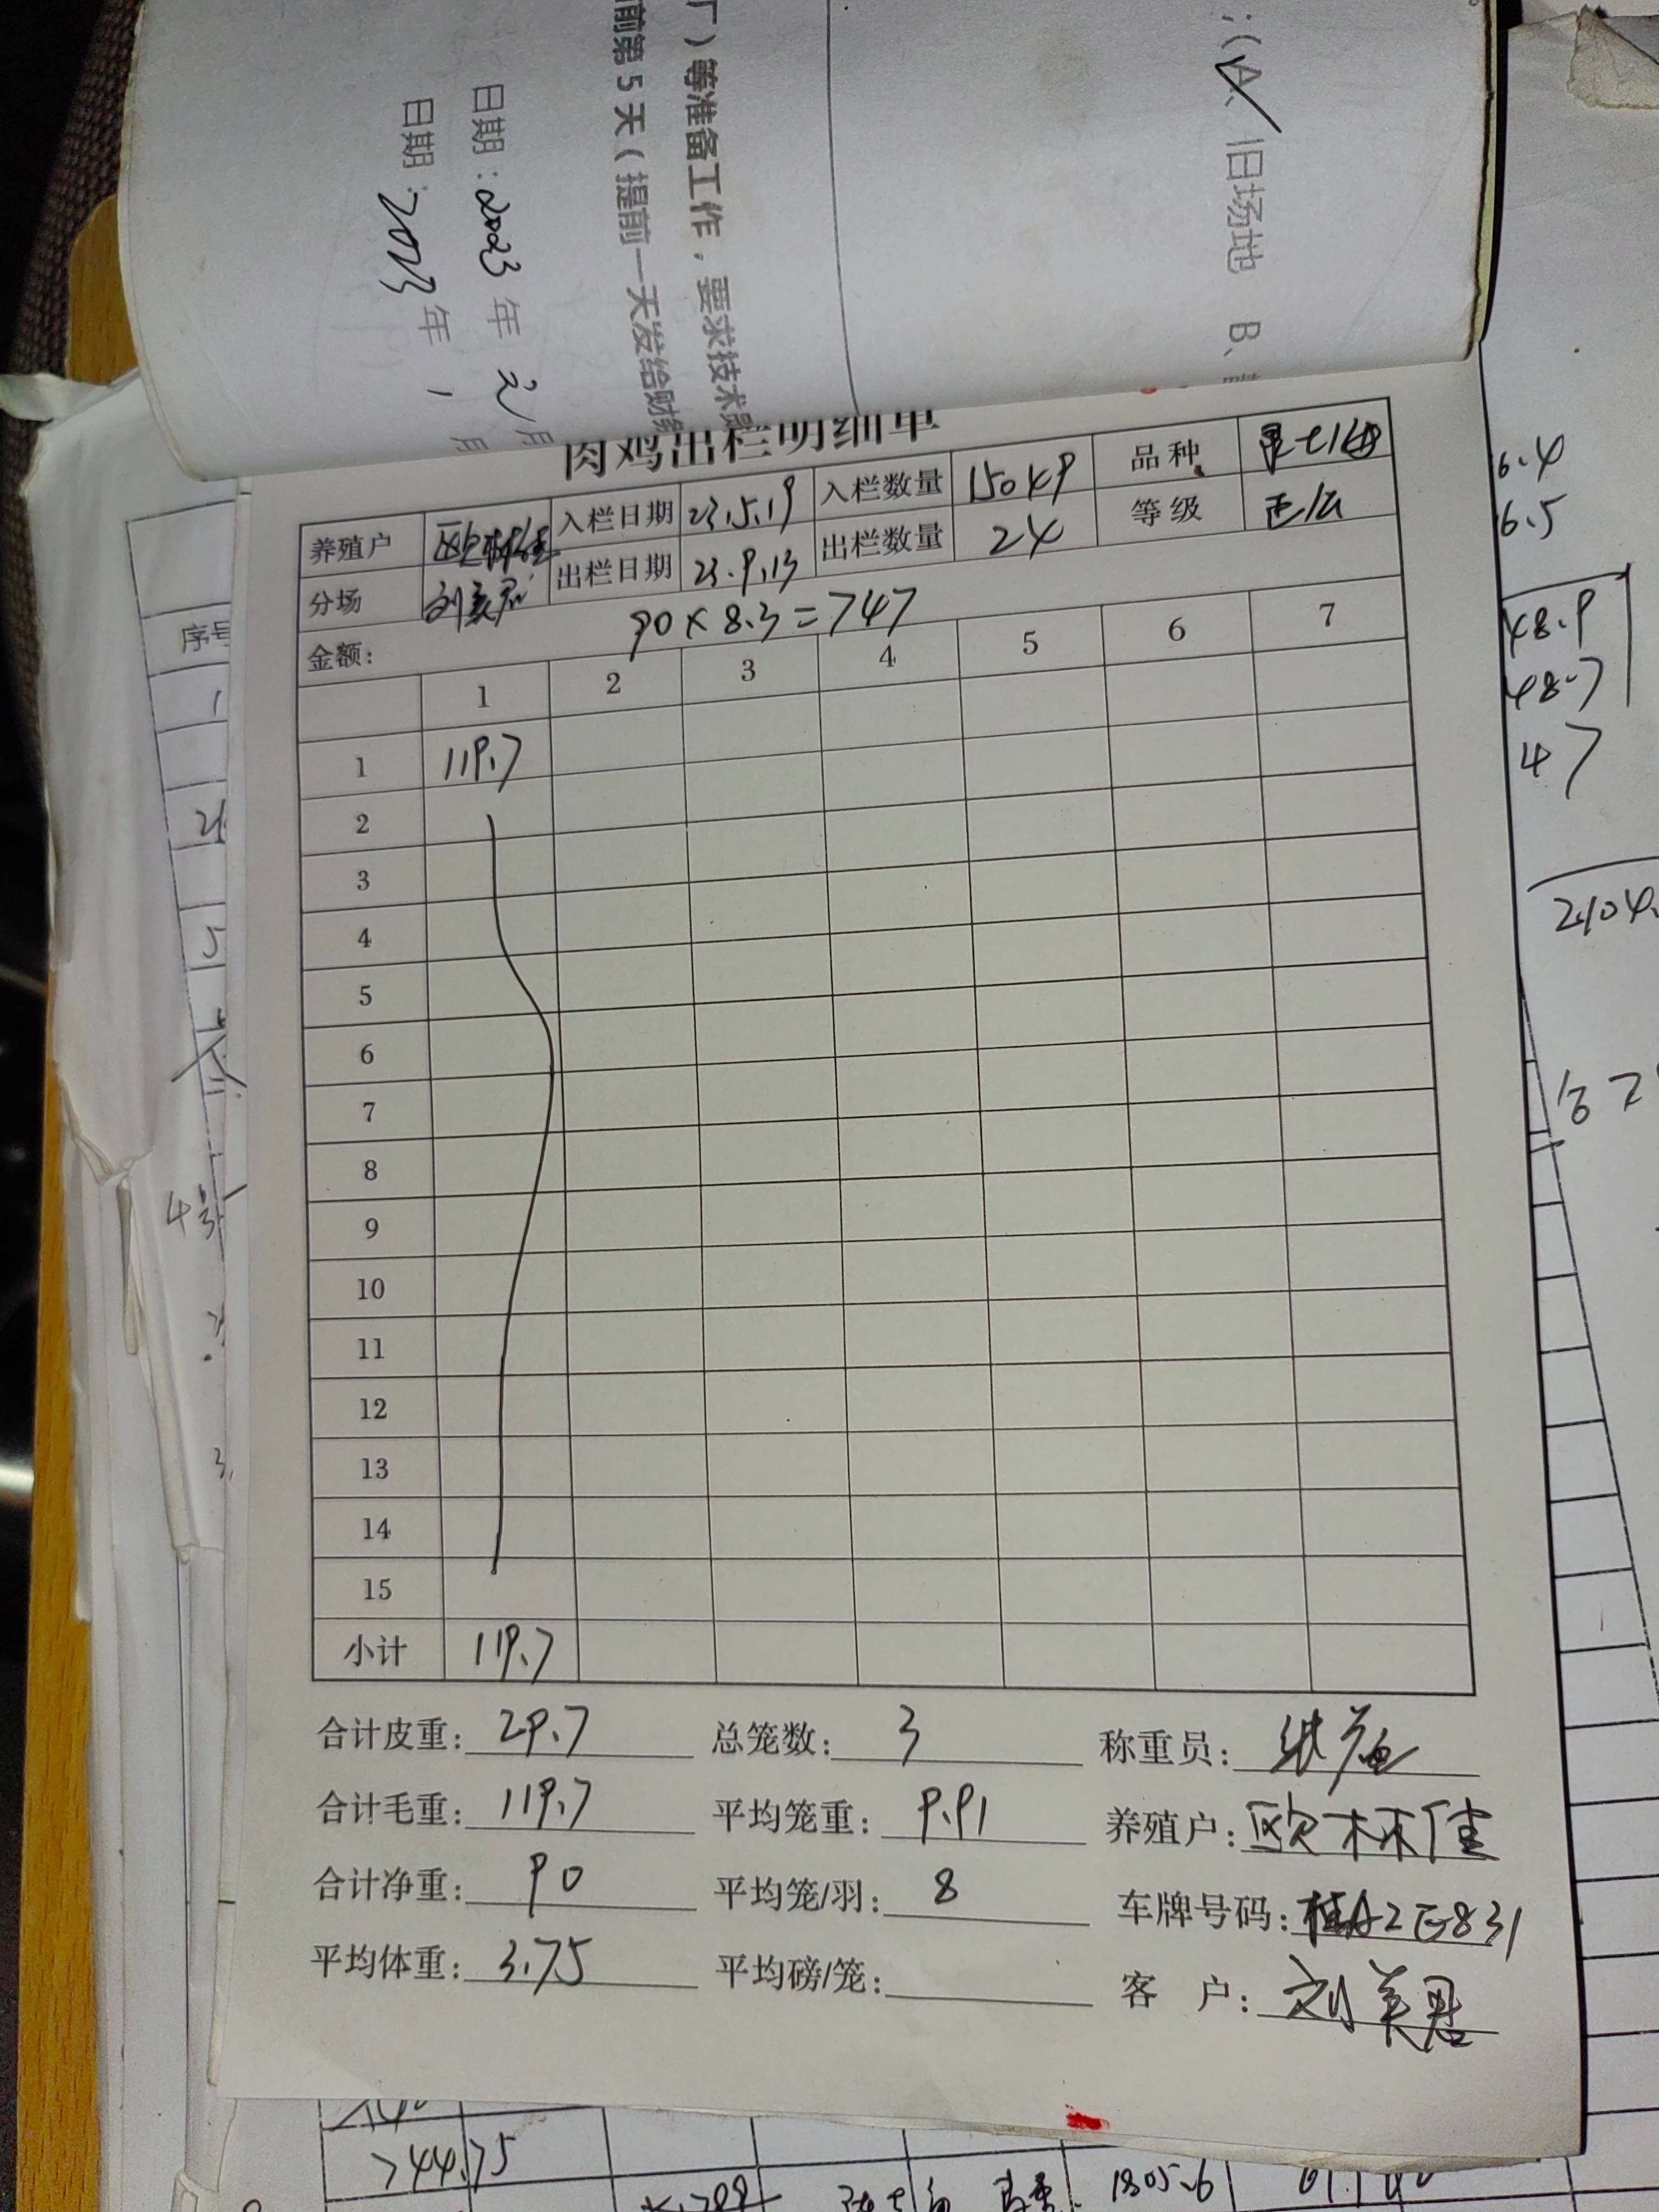 厂）等准备工作，要求技术员
前第5天（提前一天发给财务
日期：2023年元月
日期：2023年1月
A、旧场地 B、
肉鸡出栏明细单
养殖户 欧林佳 入栏日期 23.5.19 入栏数量 15049 品种
分场 刘美恩 出栏日期 23.9.13 出栏数量 24 等级 正品
金额： 90×8.3=747
1 2 3 4 5 6 7
1 119.7
2
3
4
5
6
7
8
9
10
11
12
13
14
15
小计 119.7
合计皮重：29.7 总笼数：3 称重员：
合计毛重：119.7 平均笼重：9.91 养殖户：欧林佳
合计净重：90 平均笼/羽：8 车牌号码：桂A2E831
平均体重：3.75 平均磅/笼： 客户：刘美恩
序号
1
4号
6.4
6.5
48.9
48.7
47
2104.
744.75
1805.6